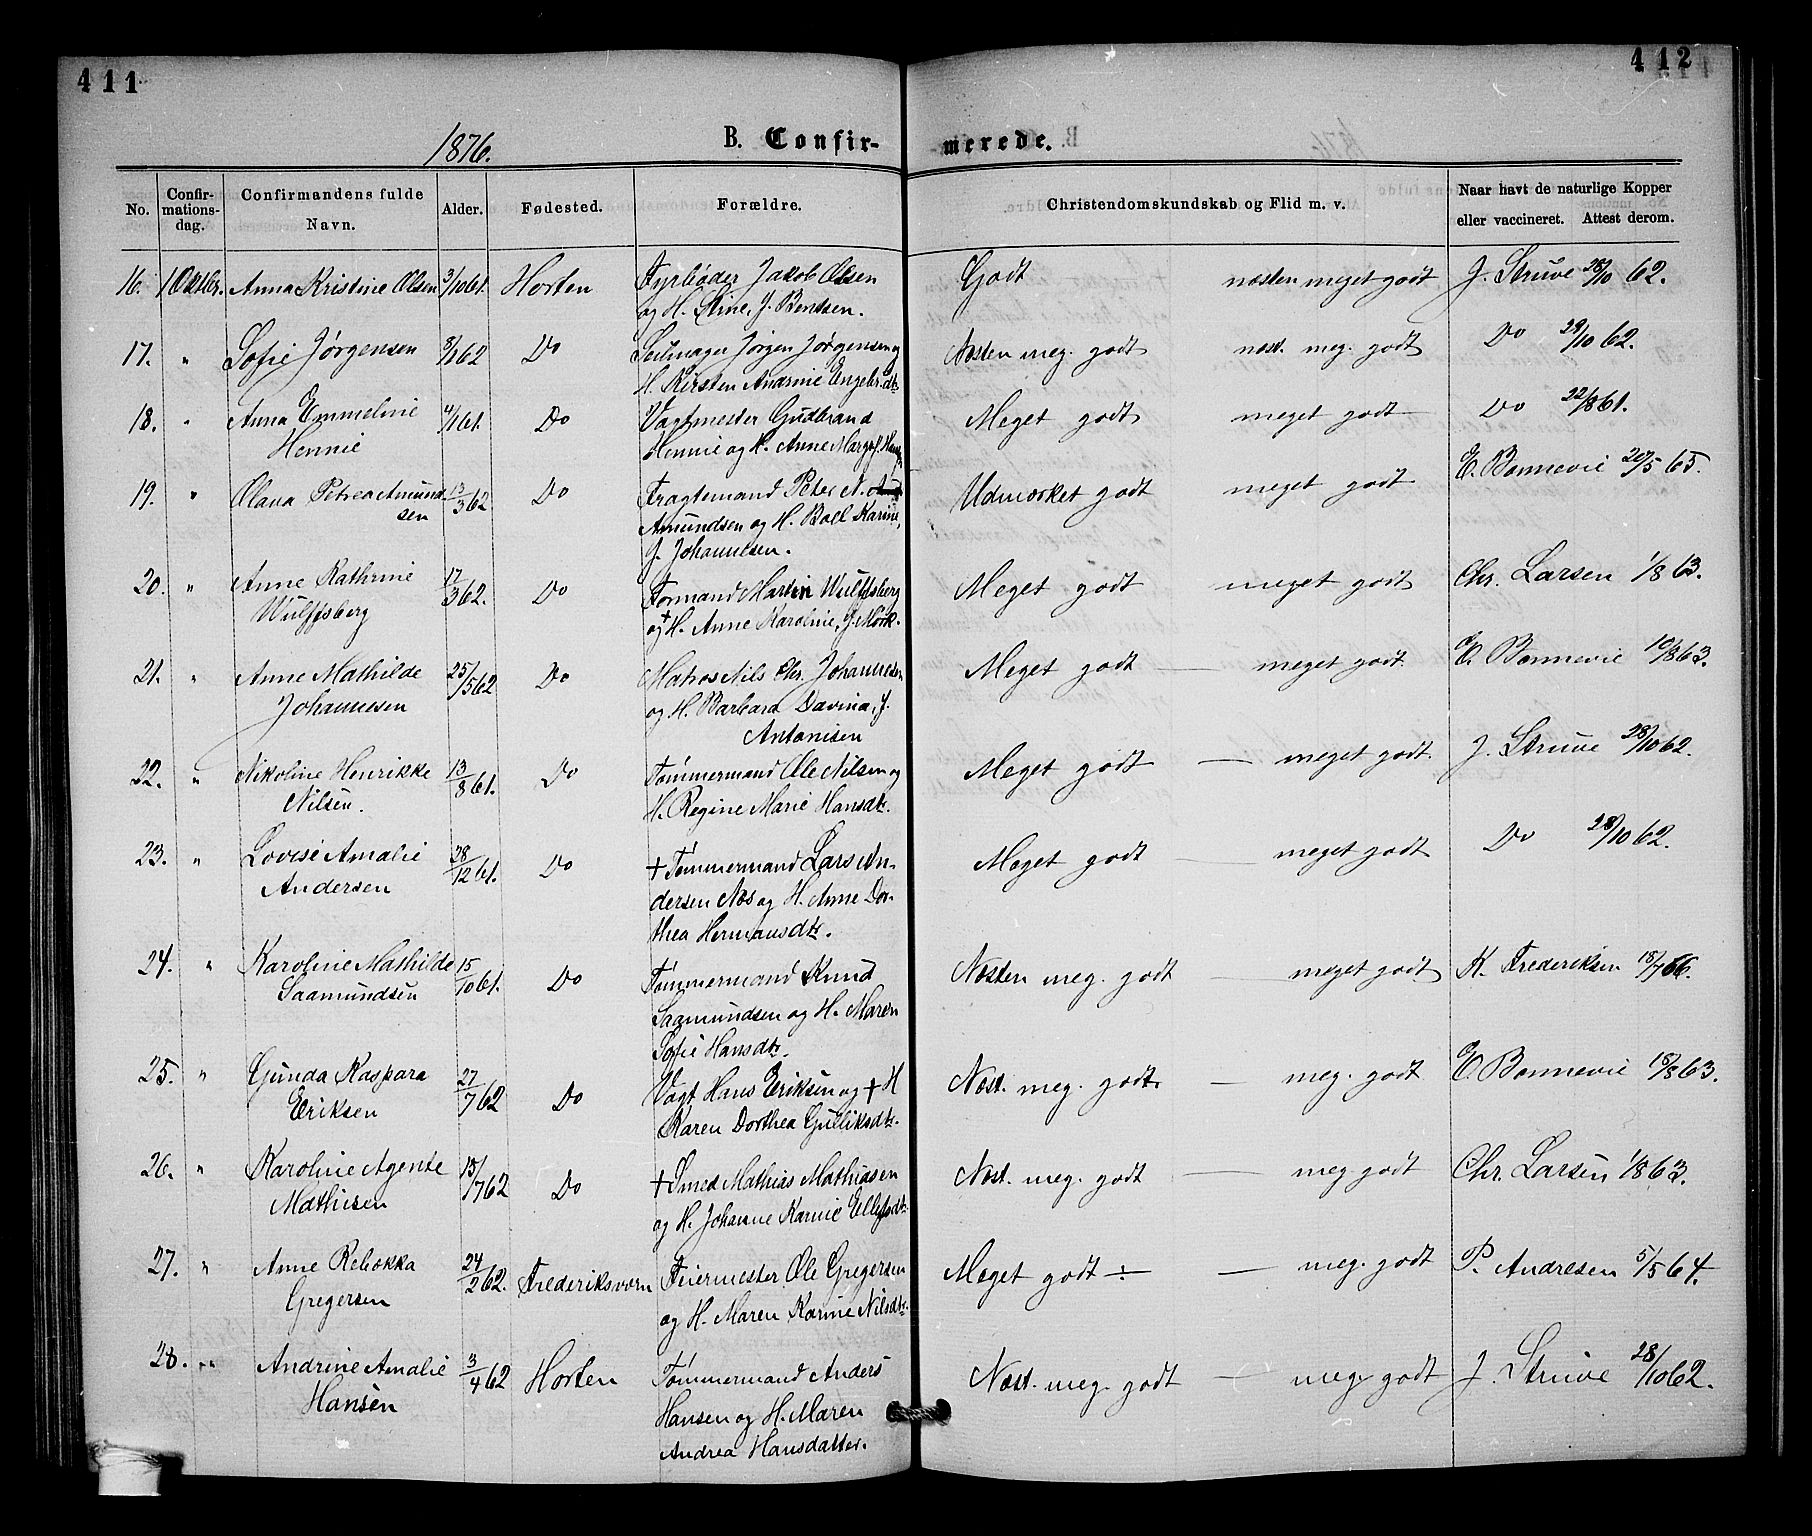 411
412
1876.
B. Confir-
merede.
No.
Confir-
mations-
dag.
Confirmandens fulde
Navn.
Alder.
Fødested.
Forældre.
Christendomskundskab og Flid m. v.
Naar havt de naturlige Kopper
eller vaccineret. Attest derom.
16. 1 Oktbr. Anna Kristine Olsen 3/10 61. Horten Fyrbøder Jakob Olsen Godt næsten meget godt J. Struve 28/10 62.
og H. Stine, J. Bentsen.
17. " Sofie Jørgensen 8/1 62 Do Seilmager Jørgen Jørgensen og Næsten meg. godt næst. meg. godt Do 29/10 62.
H. Kirsten Andrine Engebr.dtr
18. " Anna Emmeline 4/1 61. Do Vagtmester Gudbrand Meget godt meget godt Do 22/8 61.
Hennie Hennie og H. Anne Margr. J.
19. " Olava Petrea Amund- 13/3 62 Do Fragtemand Peter N. Udmærket godt meget godt E. Bonnevie 20/5 65.
sen Amundsen og H. Boel Karine,
J. Johannesen.
20. " Anne Kathrine 17/3 62. Do Formand Martin Wulffsberg Meget godt meget godt Chr. Larsen 1/8 63.
Wulffsberg og + H. Anne Karoline, J. Mørk.
21. " Anne Mathilde 25/5 62 Do Matros Nils Chr. Johannesen Meget godt — meget godt E. Bonnevie 10/8 63.
Johannesen og H. Barbara Davina, J.
Antonisen
22. " Nikoline Henrikke 13/8 61. Do Tømmermand Ole Nilsen og Meget godt — meget godt J. Struve 28/10 62.
Nilsen. H. Regine Marie Hansdtr.
23. " Lovise Amalie 28/12 61. Do + Tømmermand Lars An- Meget godt — meget godt Do 28/10 62.
Andersen dersen Næs og H. Anne Dor-
thea Hermansdtr.
24. " Karoline Mathilde 15/10 61. Do Tømmermand Knud Næsten meg. godt — meget godt K. Frederiksen 18/7 66.
Saamundsen Saamundsen og H. Maren
Sofie Hansdtr.
25. " Gunda Kaspara 27/7 62 Do Vagt Hans Eriksen og + H Næst. meg. godt. — meg. godt E. Bonnevie 18/8 63.
Eriksen Karen Dorthea Gulliksdtr.
26. " Karoline Agente 15/7 62 Do + Smed Mathias Mathiasen Næst. meg. godt — meg godt Chr. Larsen 1/8 63.
Mathisen og H. Johanne Karine
27. " Anne Rebekka 24/2 62. Frederiksværn Feiermester Ole Gregersen Meget godt ÷ — meg. godt P. Andresen 5/5 64.
Gregersen og H. Maren Karine Nilsdtr.
28. " Andrine Amalie 3/4 62 Horten Tømmermand Anders Næst. meg. godt — meg. godt J. Struve 28/10 62.
Hansen Hansen og H. Maren
Andrea Hansdatter.